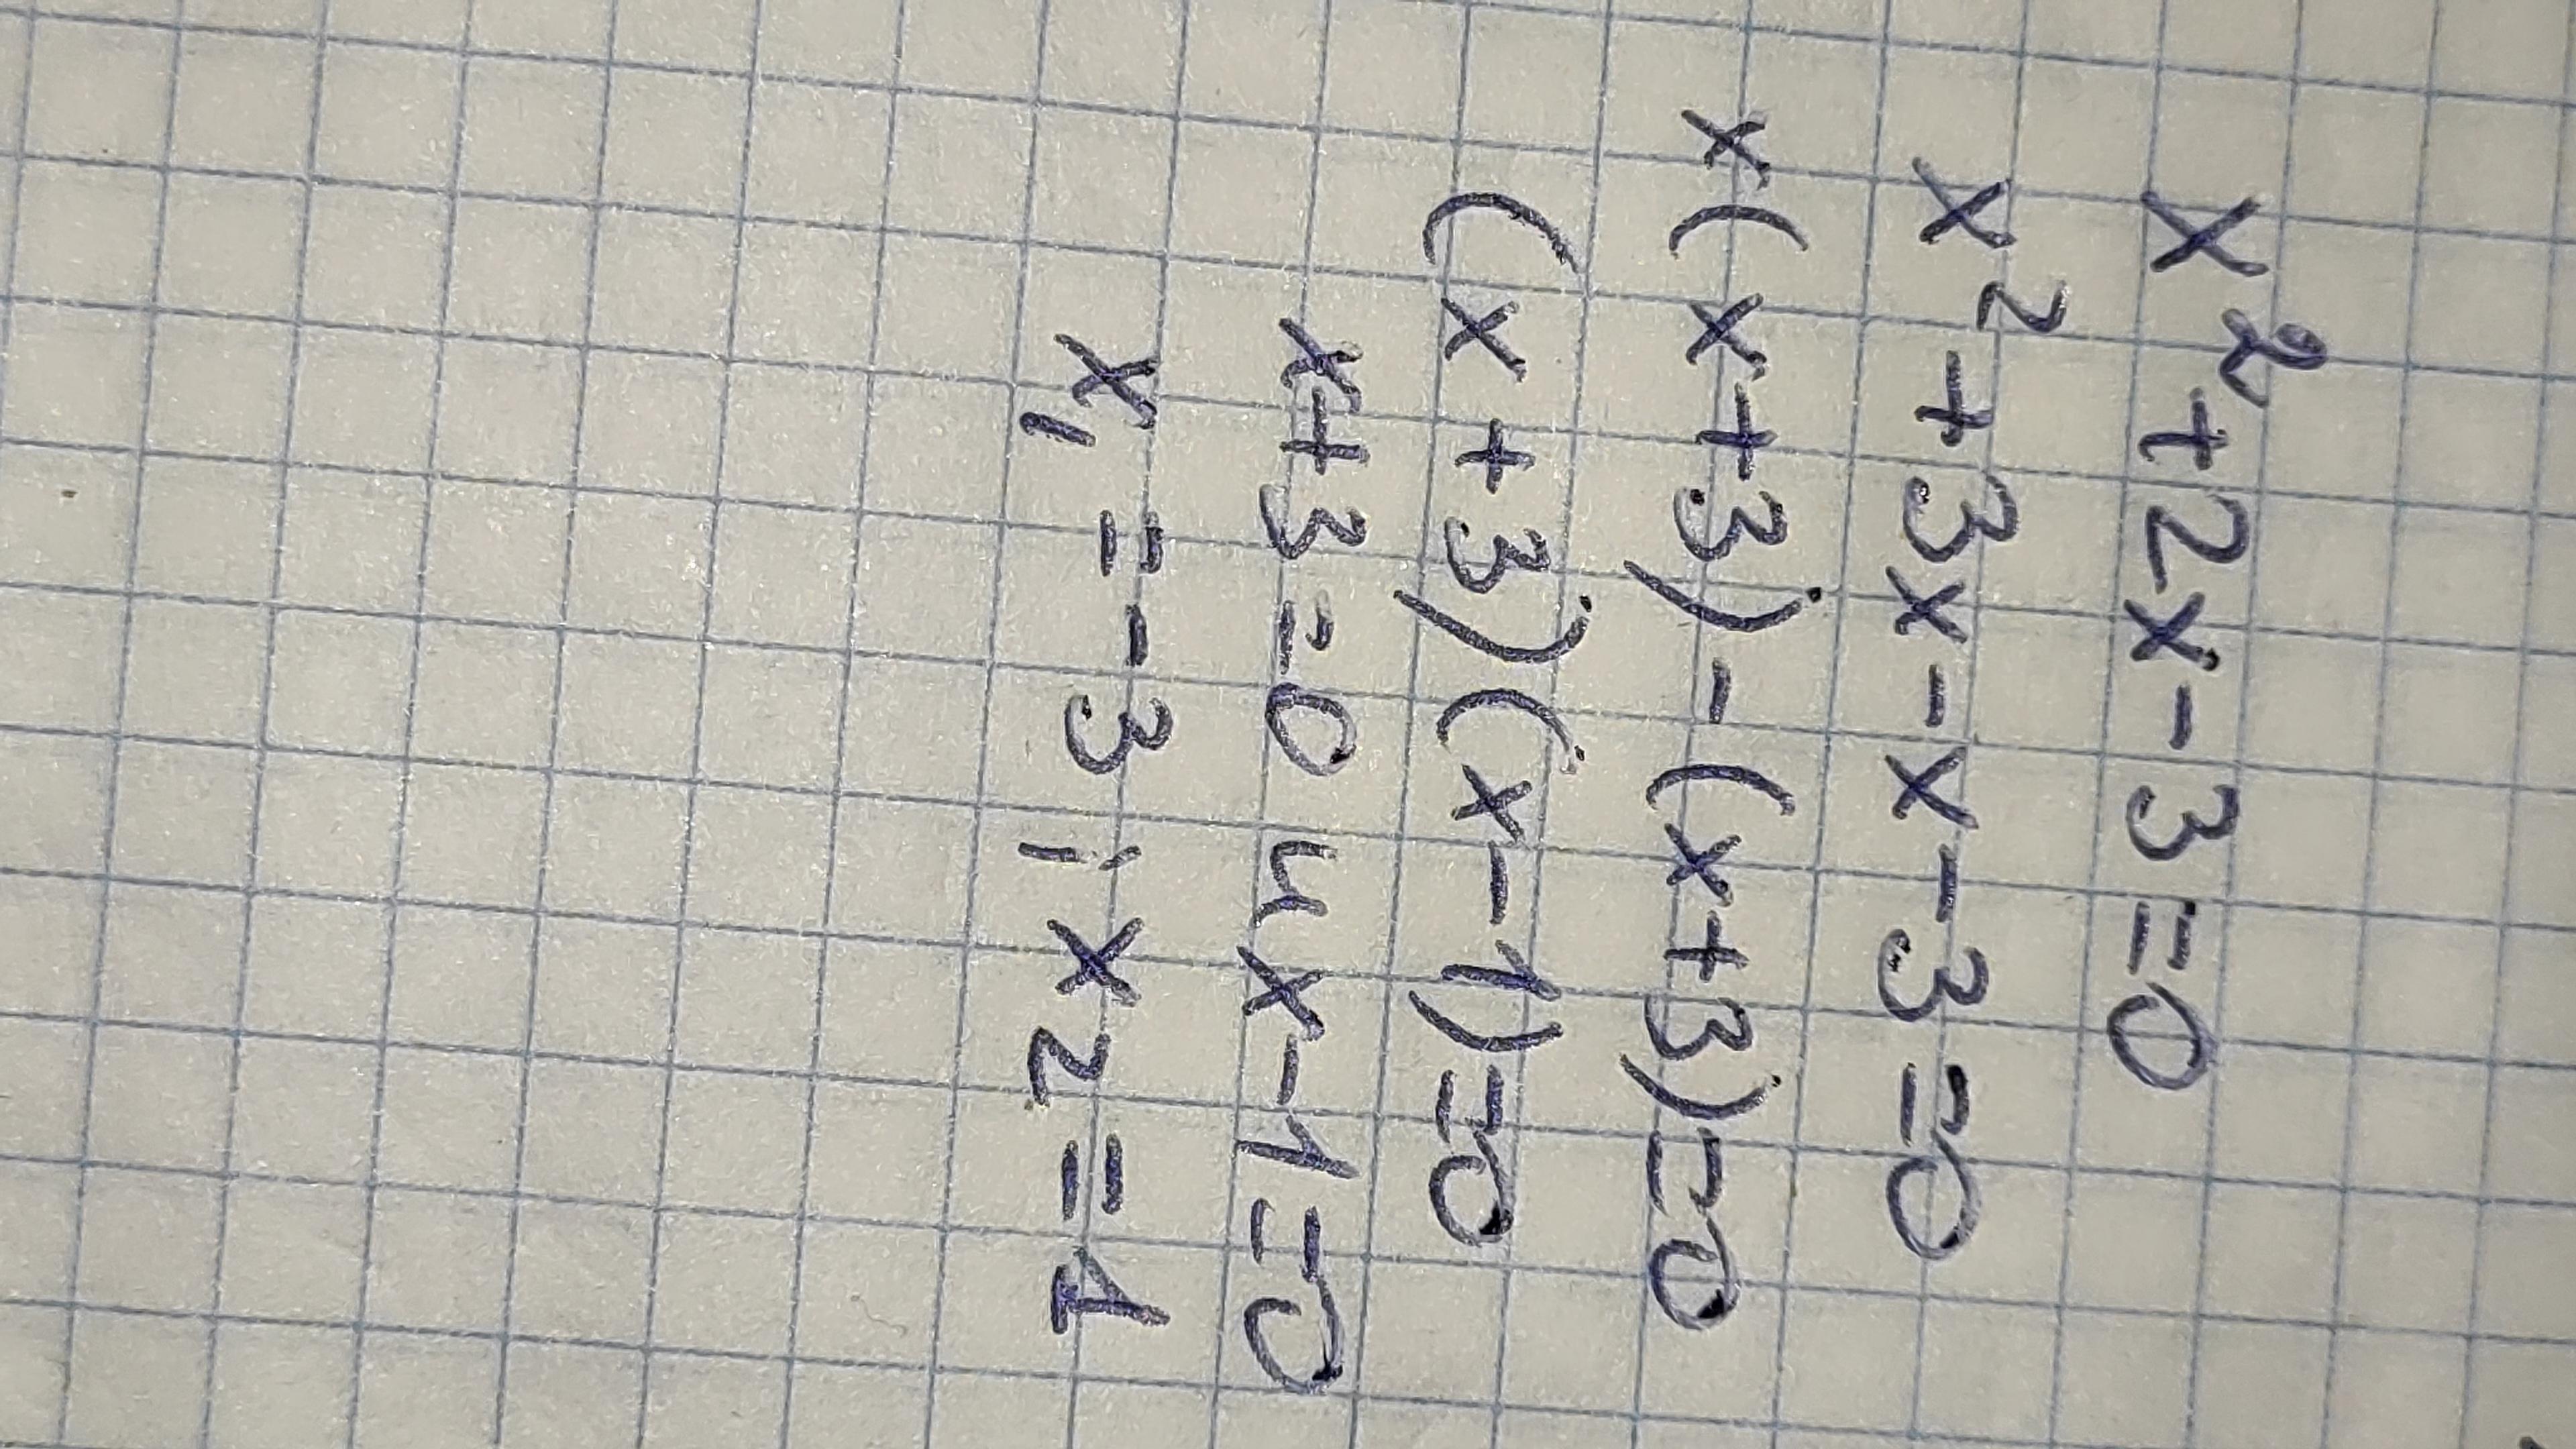 x² + 2x - 3 = 0
x² + 3x - x - 3 = 0
x(x + 3) - (x + 3) = 0
(x + 3)(x - 1) = 0
x + 3 = 0 и x - 1 = 0
x₁ = -3; x₂ = 1